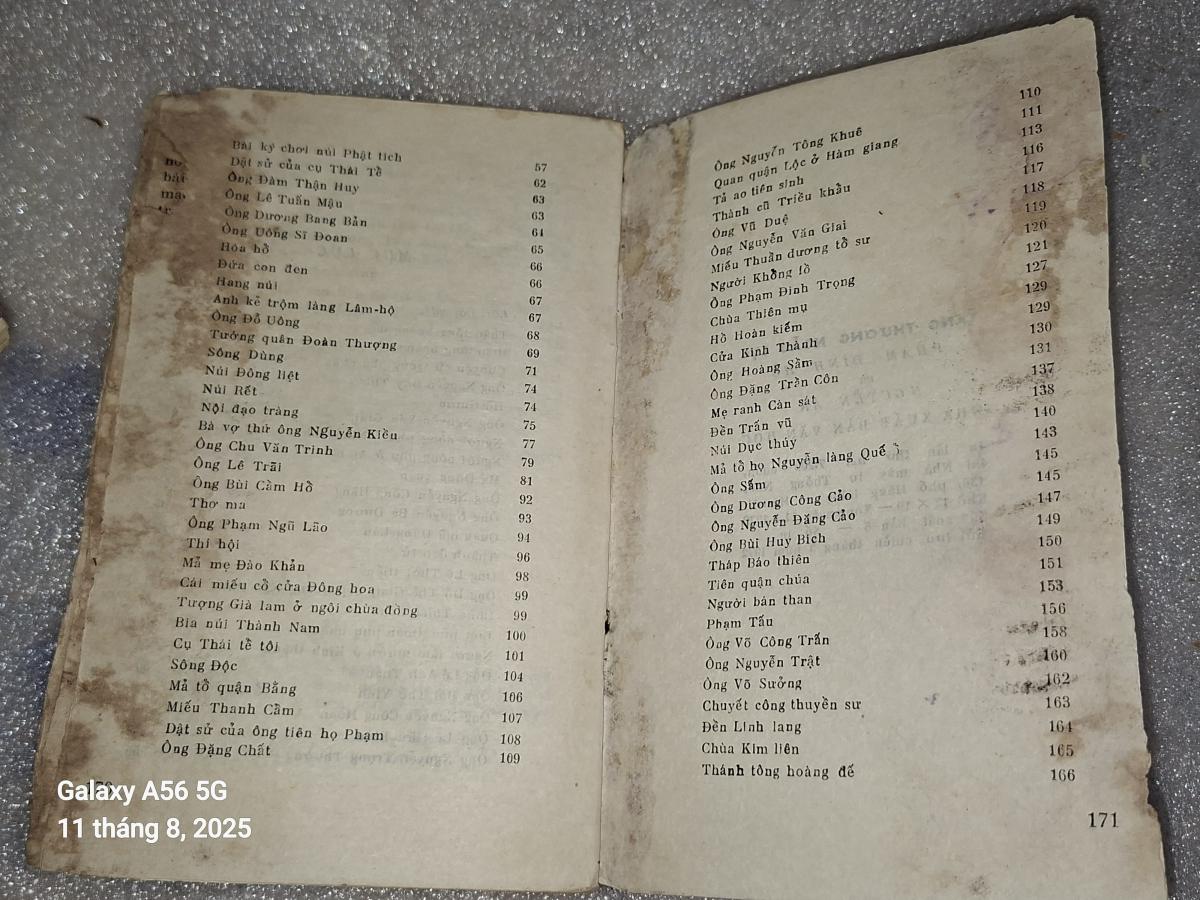 Bài ký chơi núi Phật tích 57
Dật sử của cụ Thái Tề 62
Ông Đàm Thận Huy 63
Ông Lê Tuấn Mậu 63
Ông Dương Bang Bản 64
Ông Uông Sĩ Đoan 65
Hóa hổ 66
Đứa con đen 66
Hang núi 67
Anh kẻ trộm làng Lâm-hộ 67
Ông Đỗ Uông 68
Tướng quân Đoàn Thượng 69
Sông Dùng 71
Núi Đông liệt 74
Núi Rết 74
Nội đạo tràng 75
Bà vợ thứ ông Nguyễn Kiều 77
Ông Chu Văn Trinh 79
Ông Lê Trãi 81
Ông Bùi Cầm Hổ 92
Thơ ma 93
Ông Phạm Ngũ Lão 94
Thi hội 96
Mả mẹ Đào Khản 98
Cái miếu cổ cửa Đông hoa 99
Tượng Già lam ở ngôi chùa đồng 99
Bia núi Thành Nam 100
Cụ Thái tể tôi 101
Sông Độc 104
Mả tổ quận Bằng 106
Miếu Thanh Cầm 107
Dật sử của ông tiên họ Phạm 108
Ông Đặng Chất 109
Ông Nguyễn Tông Khuê 110
Quan quận Lộc ở Hàm giang 111
Tả ao tiên sinh 113
Thành cũ Triều khẩu 116
Ông Vũ Duệ 117
Ông Nguyễn Văn Giai 118
Miếu Thuần dương tổ sư 119
Người Khổng lồ 120
Ông Phạm Đình Trọng 121
Chùa Thiên mụ 127
Hồ Hoàn kiếm 129
Cửa Kinh Thành 129
Ông Hoàng Sầm 130
Ông Đặng Trần Côn 131
Mẹ ranh Càn sát 137
Đền Trấn vũ 138
Núi Dục thúy 140
Mả tổ họ Nguyễn làng Quế ổ 143
Ông Sắm 145
Ông Dương Công Cảo 145
Ông Nguyễn Đăng Cảo 147
Ông Bùi Huy Bích 149
Tháp Báo thiên 150
Tiên quận chúa 151
Người bán than 153
Phạm Tấu 156
Ông Võ Công Trấn 158
Ông Nguyễn Trật 160
Ông Võ Sưởng 162
Chuyết công thuyền sư 163
Đền Linh lang 164
Chùa Kim liên 165
Thánh tông hoàng đế 166
171
Galaxy A56 5G
11 tháng 8, 2025